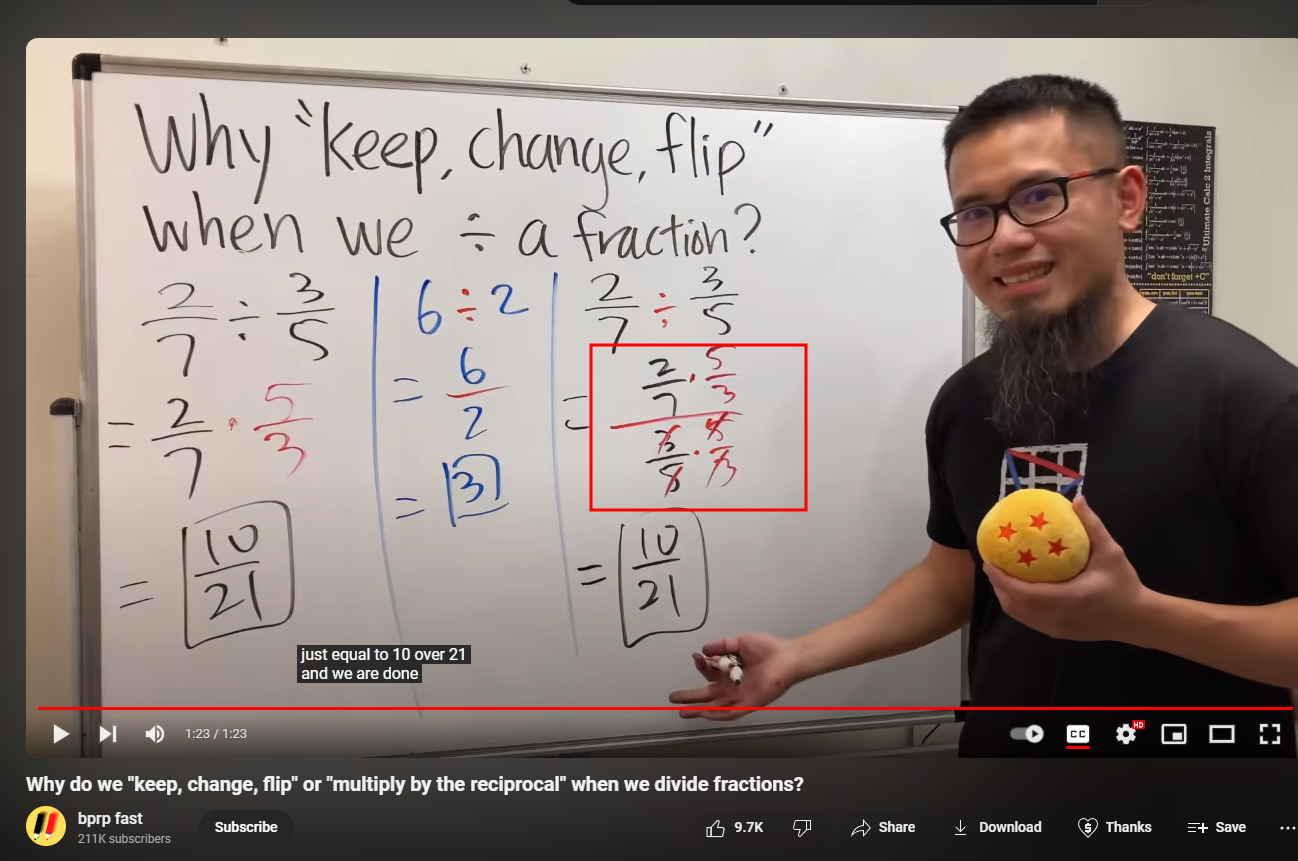 Why "keep, change, flip"
when we ÷ a fraction?
2/7 ÷ 3/5
= 2/7 · 5/3
= 10/21
6 ÷ 2
= 6/2
= 3
2/7 ÷ 3/5
= (2/7 · 5/3)/(3/5 · 5/3)
= 10/21
Ultimate Calc 2 Integrals
"don't forget +C"
just equal to 10 over 21
and we are done
1:23 / 1:23
CC
HD
Why do we "keep, change, flip" or "multiply by the reciprocal" when we divide fractions?
bprp fast
211K subscribers
Subscribe
9.7K
Share
Download
Thanks
Save